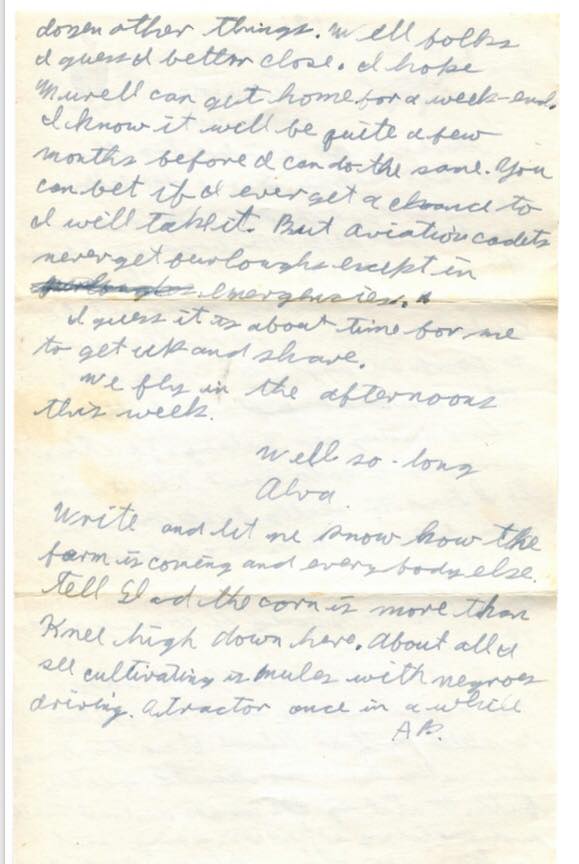 dozen other things. Well folks
I guess I better close. I hope
Murell can get home for a week-end.
I know it will be quite a few
months before I can do the same. You
can bet if I ever get a chance to
I will take it. But aviation cadets
never get ourloughs except in
emergencies.
I guess it is about time for me
to get up and shave.
We fly in the afternoons
this week.
Well so-long
Alva.
Write and let me know how the
farm is coming and everybody else.
Tell Glad the corn is more than
Knee high down here. About all I
see cultivating is mules with negroes
driving. A tractor once in a while
AB.